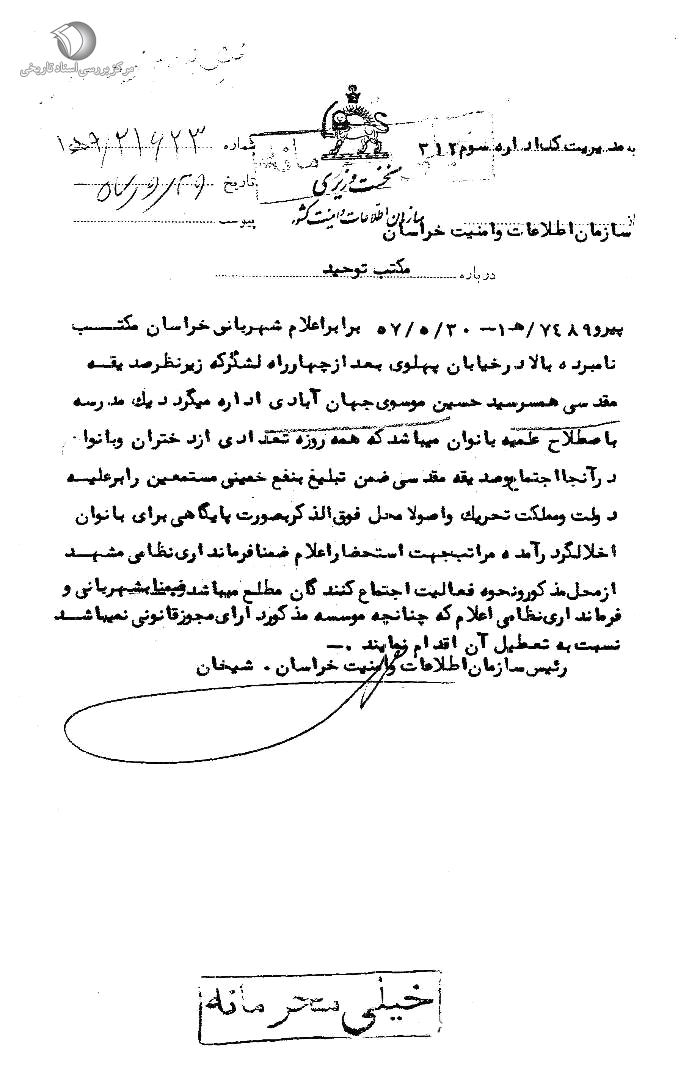 مرکز بررسی اسناد تاریخی
به مدیریت کل اداره سوم ۳۱۲
شماره
نخست وزیری
تاریخ
سازمان اطلاعات و امنیت کشور
پیوست
از
سازمان اطلاعات و امنیت خراسان
درباره مکتب توحید
پیرو ۷۴۸۹/ه۱ – ۵۷/۵/۳۰ برابر اعلام شهربانی خراسان مکتب
نامبرده بالا در خیابان پهلوی بعد از چهارراه لشگر که زیر نظر صدیقه
مقدسی همسر سید حسین موسوی جهان آبادی اداره میگردد یك مدرسه
باصطلاح علمیه بانوان میباشد که همه روزه تعدادی از دختران و بانوان
در آنجا اجتماع و صدیقه مقدسی ضمن تبلیغ بنفع خمینی مستمعین را بر علیه
دولت و مملکت تحریك و اصولا محل فوق الذکر بصورت پایگاهی برای بانوان
اخلالگر درآمده مراتب جهت استحضار اعلام ضمنا فرمانداری نظامی مشهد
از محل مذکور و نحوه فعالیت اجتماع کنندگان مطلع میباشد ضمنا بشهربانی و
فرمانداری نظامی اعلام که چنانچه موسسه مذکور دارای مجوز قانونی نمیباشد
نسبت به تعطیل آن اقدام نمایند .–
رئیس سازمان اطلاعات و امنیت خراسان . شیخان
خیلی محرمانه